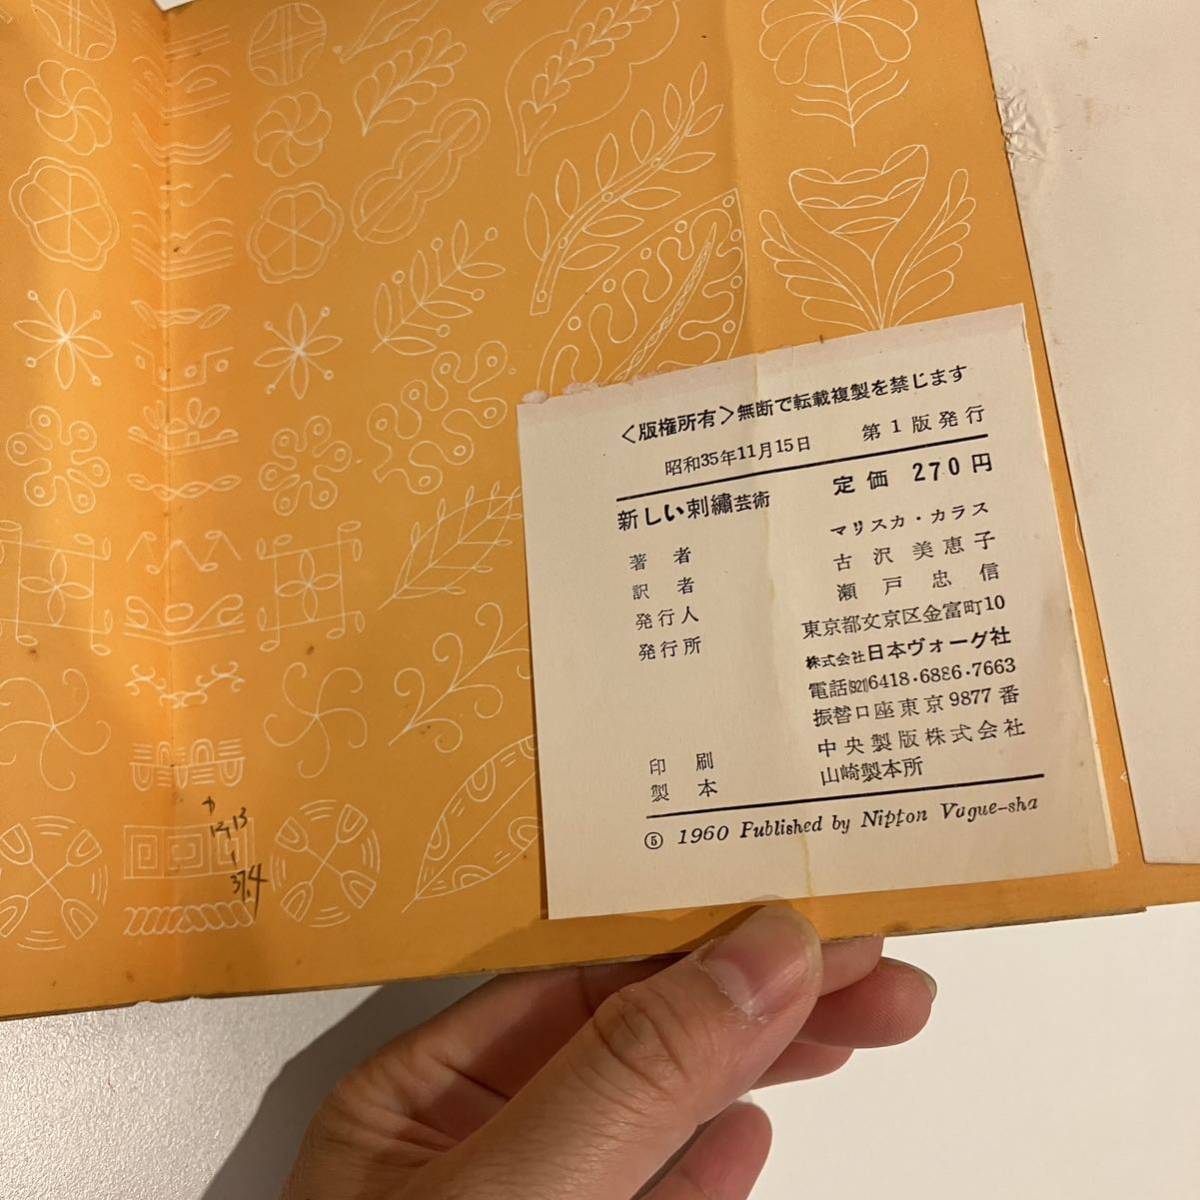 〈版権所有〉無断で転載複製を禁じます
昭和35年11月15日 第1版発行
新しい刺繡芸術 定価 270円
著者 マリスカ・カラス
訳者 古沢美恵子
発行人 瀬戸忠信
発行所 東京都文京区金富町10
株式会社日本ヴォーグ社
電話(921)6418・6886・7663
振替口座東京9877番
印刷 中央製版株式会社
製本 山崎製本所
Ⓢ 1960 Published by Nippon Vogue-sha